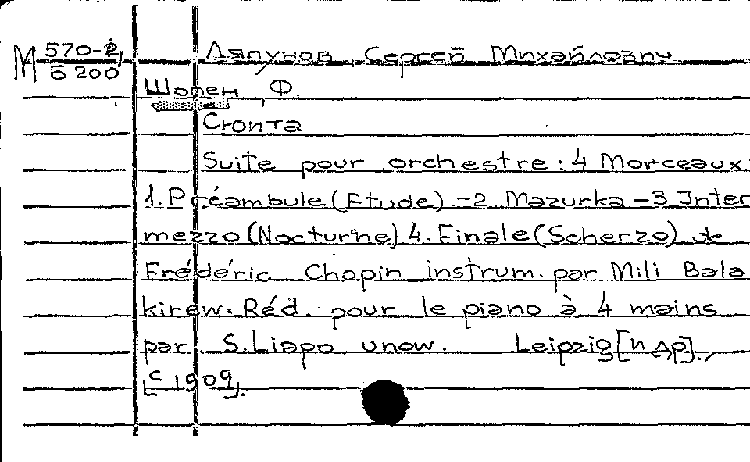 М 570-2
6200
Ляпунов Сергей Михайлович
Шопен, Ф
Сюита
Suite pour orchestre: 4 Morceaux:
1. Préambule (Etude) - 2 Mazurka - 3 Inter
mezzo (Nocturne) 4. Finale (Scherzo) de
Frédéric Chopin instrum. par Mili Bala
kirew. Réd. pour le piano à 4 mains
par S. Liapo unow. Leipzig [и др].,
[с 1909].